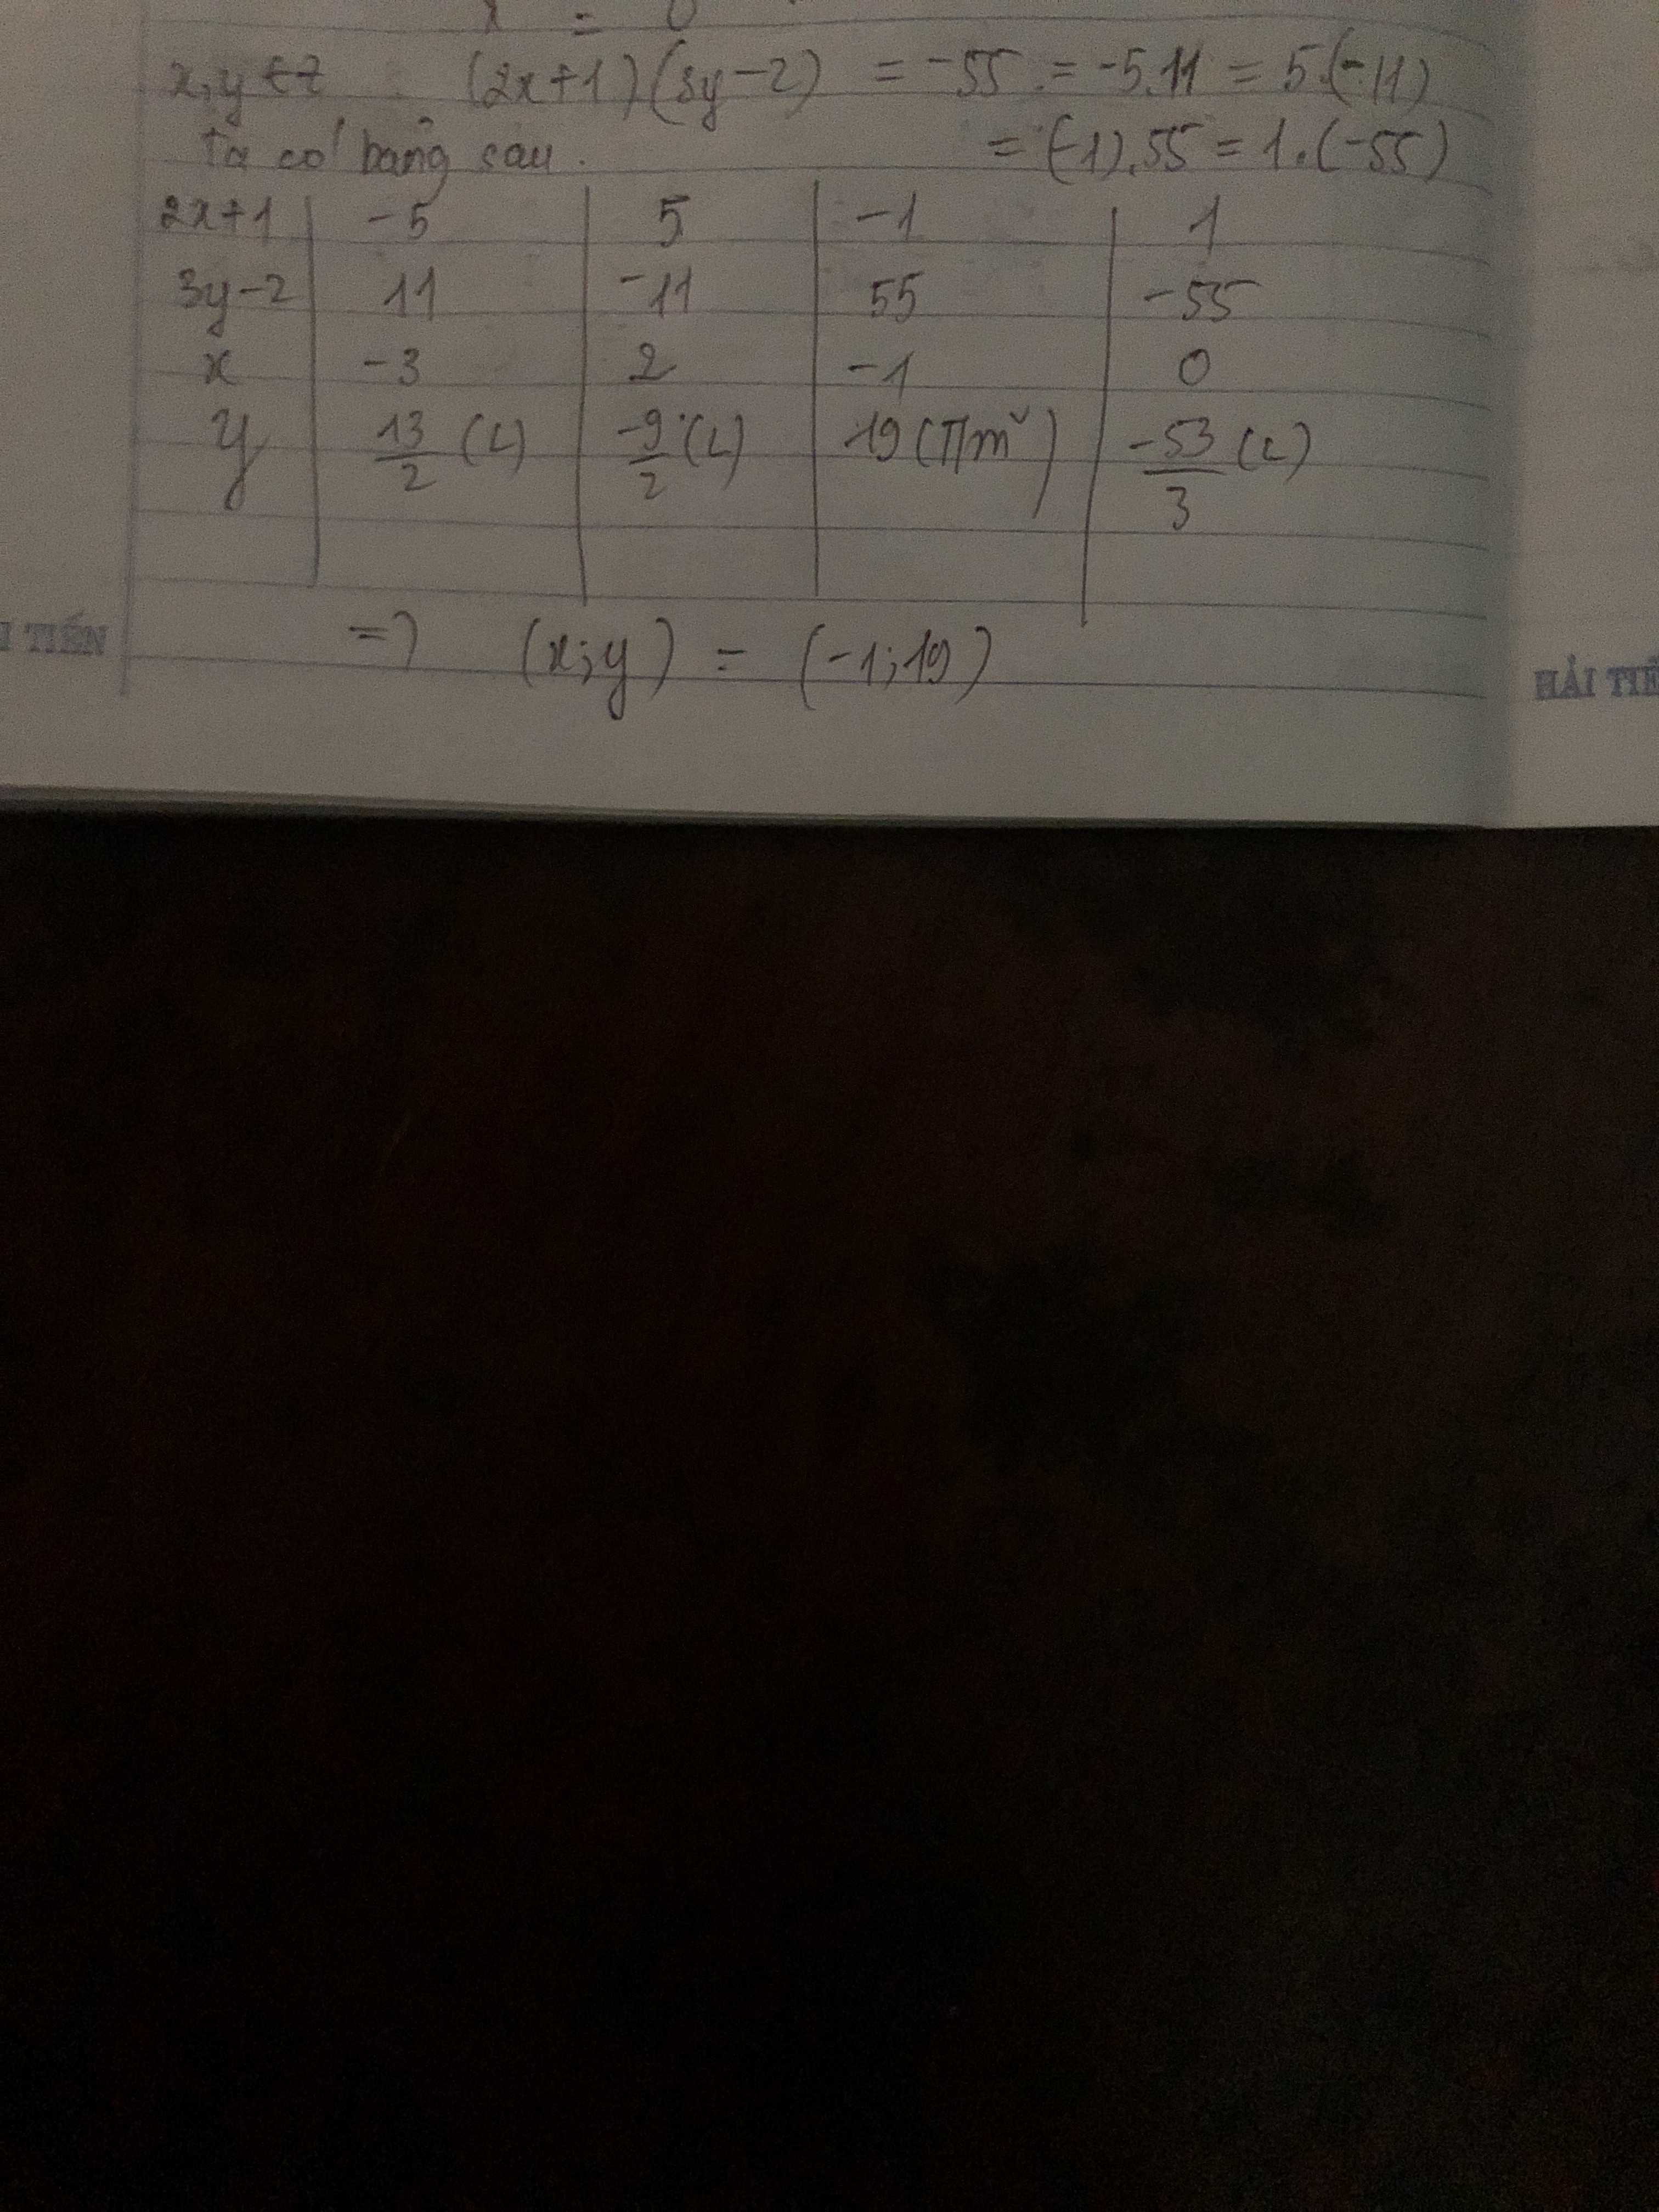 x = 0
x,y ∈ Z (2x+1)(3y-2) = -55 = -5.11 = 5.(-11)
Ta có bảng sau. = (-1).55 = 1.(-55)
2x+1 -5 5 -1 1
3y-2 11 -11 55 -55
x -3 2 -1 0
y 13/2 (L) -9/2 (L) 19 (T/m) -53/3 (L)
I TIẾN
=> (x;y) = (-1;19)
HẢI TIẾ